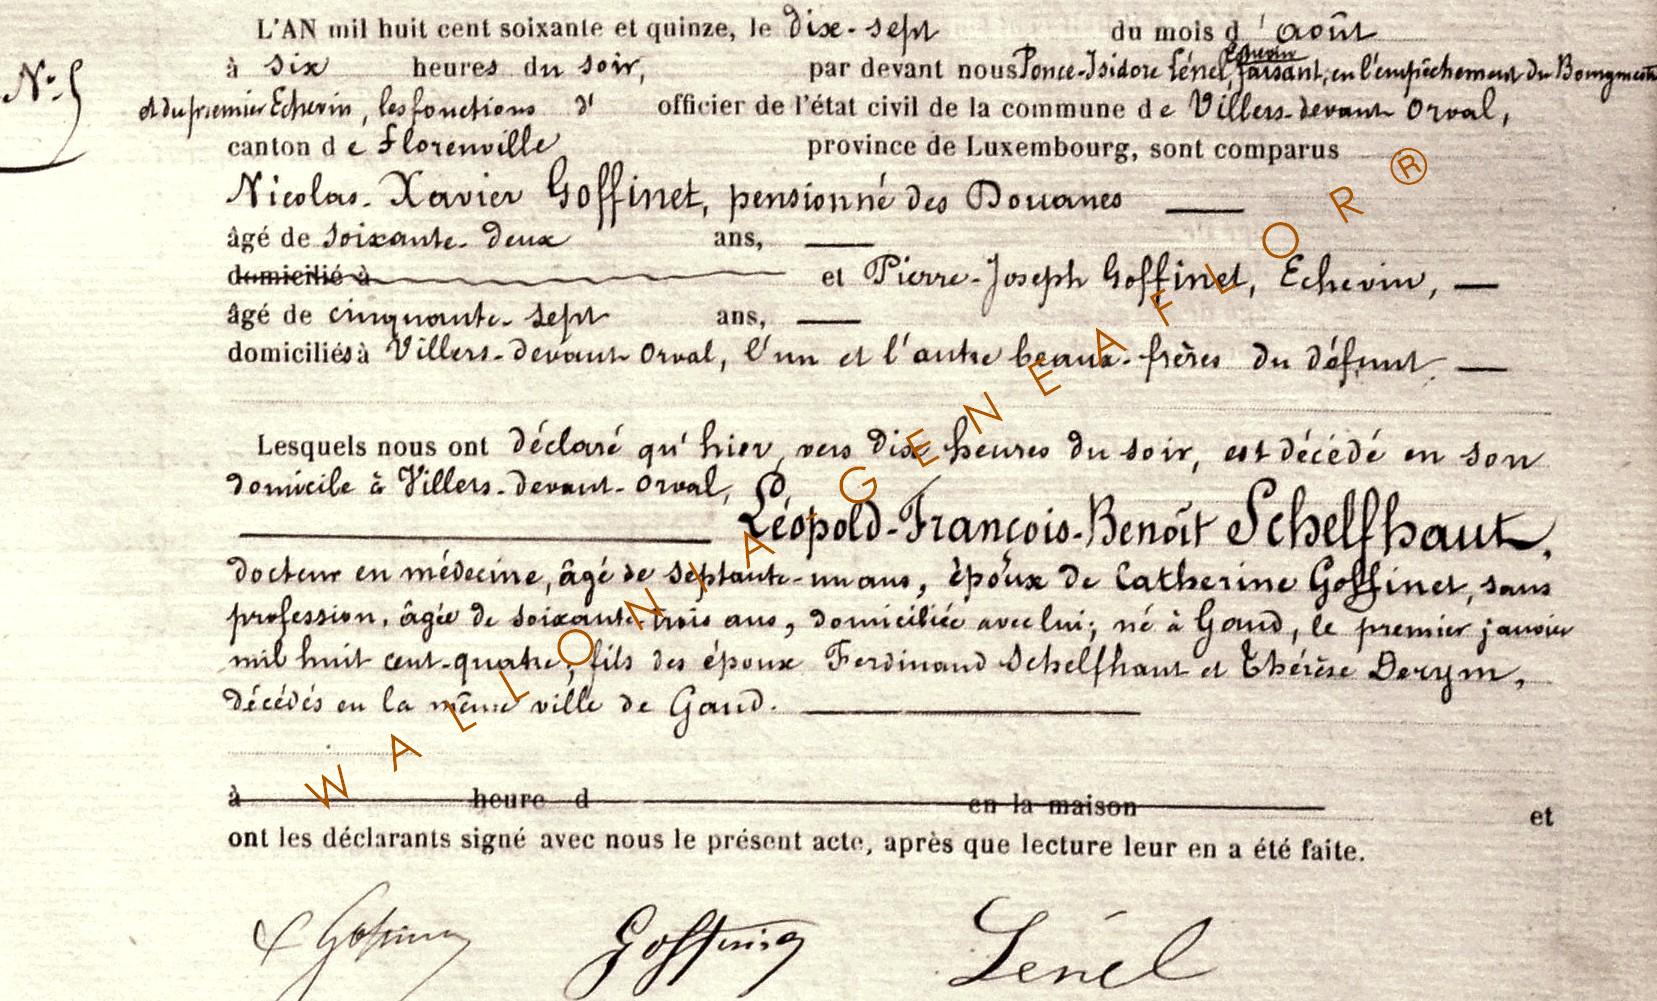 L'AN mil huit cent soixante et quinze, le dix-sept du mois d'août
à six heures du soir, par devant nous Ponce-Isidore Lénel, Echevin, faisant, en l'empêchement du Bourgmestre
N° 5
et du premier Echevin, les fonctions d' officier de l'état civil de la commune de Villers-devant Orval,
canton de Florenville province de Luxembourg, sont comparus
Nicolas-Xavier Goffinet, pensionné des Douanes
âgé de soixante-deux ans,
domicilié à et Pierre-Joseph Goffinet, Echevin,
âgé de cinquante-sept ans,
domiciliés à Villers-devant Orval, l'un et l'autre beaux-frères du défunt
Lesquels nous ont déclaré qu'hier, vers dix heures du soir, est décédé en son
domicile à Villers-devant-Orval,
Léopold-François-Benoît Schelfhaut,
docteur en médecine, âgé de septante-un ans, époux de Catherine Goffinet, sans
profession, âgée de soixante-trois ans, domiciliée avec lui; né à Gand, le premier janvier
mil huit cent-quatre, fils des époux Ferdinand Schelfhaut et Thérèse Derym,
décédés en la même ville de Gand.
à heure d en la maison et
ont les déclarants signé avec nous le présent acte, après que lecture leur en a été faite.
Goffinet Goffinet Lénel
WALLONIA-GENEAFLOR ®